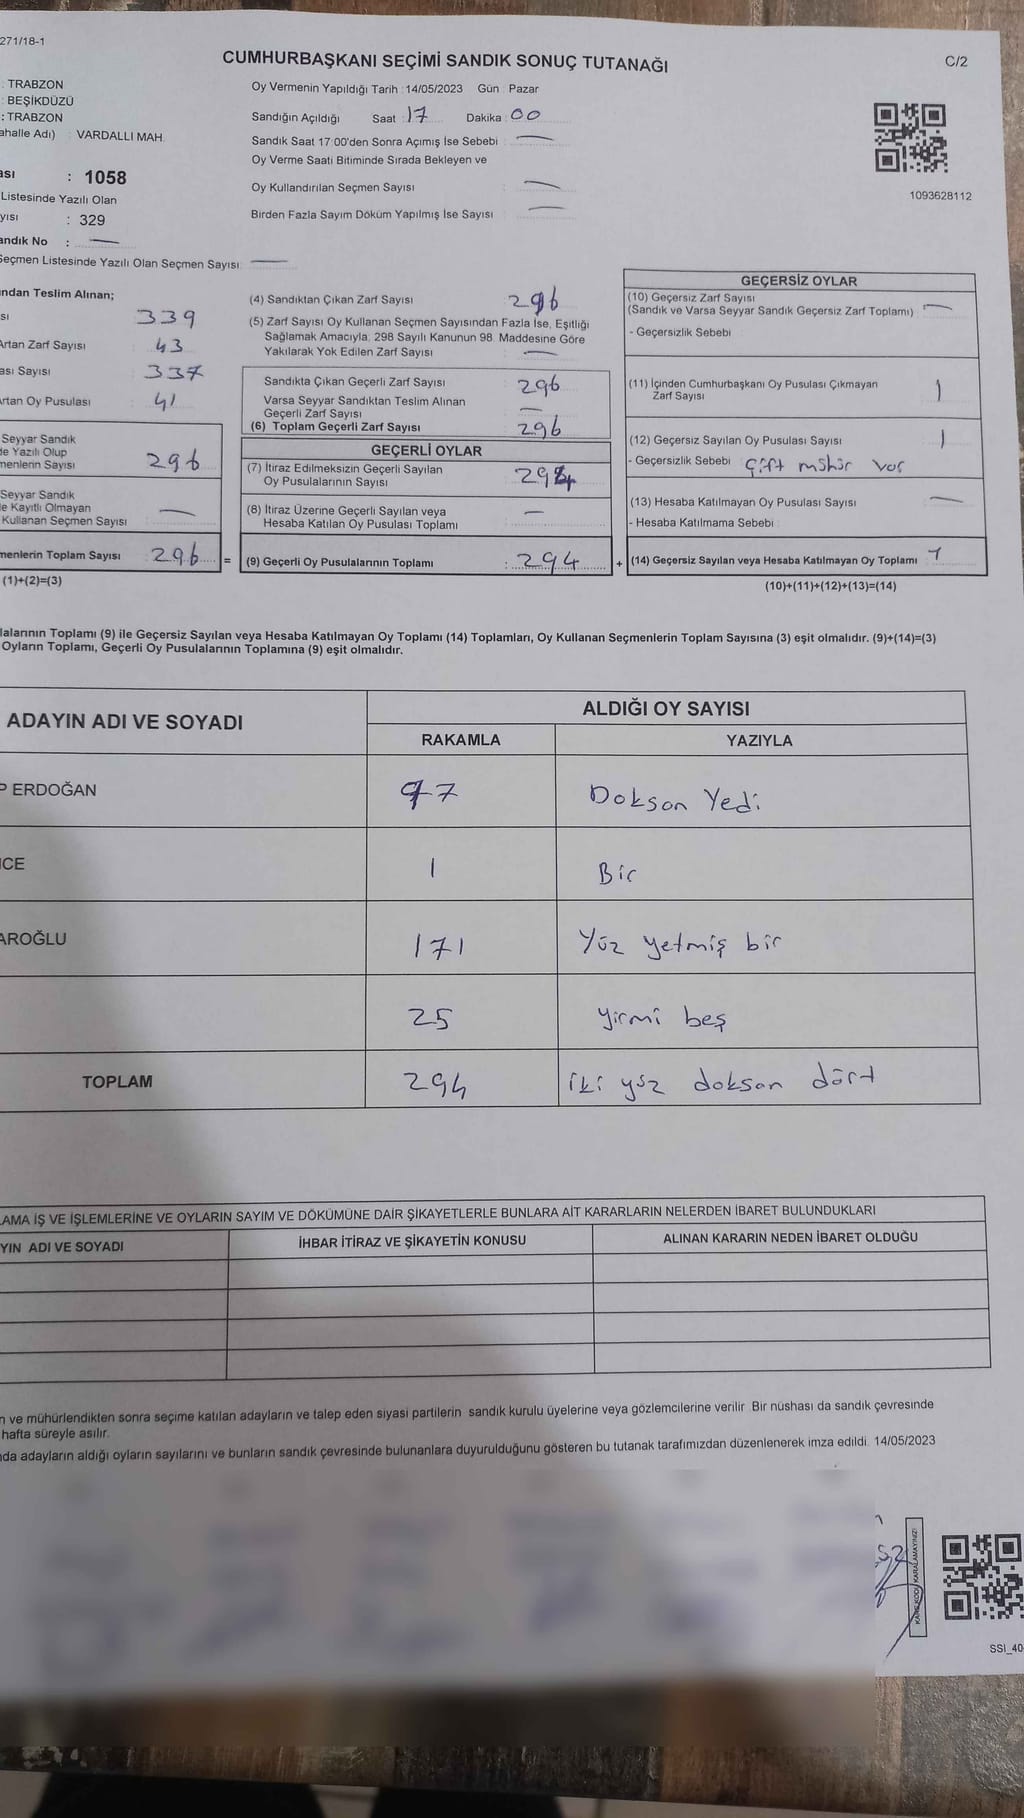 271/18-1
CUMHURBAŞKANI SEÇİMİ SANDIK SONUÇ TUTANAĞI
C/2
: TRABZON
: BEŞİKDÜZÜ
: TRABZON
ahalle Adı) VARDALLI MAH.
ası : 1058
Listesinde Yazılı Olan
yısı : 329
andık No : —
Seçmen Listesinde Yazılı Olan Seçmen Sayısı —
Oy Vermenin Yapıldığı Tarih : 14/05/2023 Gün : Pazar
Sandığın Açıldığı Saat : 17 Dakika : 00
Sandık Saat 17:00'den Sonra Açımış İse Sebebi : —
Oy Verme Saati Bitiminde Sırada Bekleyen ve
Oy Kullandırılan Seçmen Sayısı : —
Birden Fazla Sayım Döküm Yapılmış İse Sayısı : —
1093628112
ından Teslim Alınan;
sı 339
Artan Zarf Sayısı 43
ası Sayısı 337
Artan Oy Pusulası 41
Seyyar Sandık
de Yazılı Olup
menlerin Sayısı 296
Seyyar Sandık
e Kayıtlı Olmayan
Kullanan Seçmen Sayısı —
menlerin Toplam Sayısı 296 =
(1)+(2)=(3)
(4) Sandıktan Çıkan Zarf Sayısı 296
(5) Zarf Sayısı Oy Kullanan Seçmen Sayısından Fazla İse, Eşitliği
Sağlamak Amacıyla, 298 Sayılı Kanunun 98. Maddesine Göre
Yakılarak Yok Edilen Zarf Sayısı —
Sandıkta Çıkan Geçerli Zarf Sayısı 296
Varsa Seyyar Sandıktan Teslim Alınan
Geçerli Zarf Sayısı —
(6) Toplam Geçerli Zarf Sayısı 296
GEÇERLİ OYLAR
(7) İtiraz Edilmeksizin Geçerli Sayılan
Oy Pusulalarının Sayısı 294
(8) İtiraz Üzerine Geçerli Sayılan veya
Hesaba Katılan Oy Pusulası Toplamı —
(9) Geçerli Oy Pusulalarının Toplamı : 294 +
GEÇERSİZ OYLAR
(10) Geçersiz Zarf Sayısı
(Sandık ve Varsa Seyyar Sandık Geçersiz Zarf Toplamı) —
- Geçersizlik Sebebi
(11) İçinden Cumhurbaşkanı Oy Pusulası Çıkmayan
Zarf Sayısı 1
(12) Geçersiz Sayılan Oy Pusulası Sayısı 1
- Geçersizlik Sebebi Çift mühür var
(13) Hesaba Katılmayan Oy Pusulası Sayısı —
- Hesaba Katılmama Sebebi
(14) Geçersiz Sayılan veya Hesaba Katılmayan Oy Toplamı
(10)+(11)+(12)+(13)=(14)
lalarının Toplamı (9) ile Geçersiz Sayılan veya Hesaba Katılmayan Oy Toplamı (14) Toplamları, Oy Kullanan Seçmenlerin Toplam Sayısına (3) eşit olmalıdır. (9)+(14)=(3)
Oyların Toplamı, Geçerli Oy Pusulalarının Toplamına (9) eşit olmalıdır.
ADAYIN ADI VE SOYADI
ALDIĞI OY SAYISI
RAKAMLA YAZIYLA
P ERDOĞAN 97 Doksan Yedi
NCE 1 Bir
AROĞLU 171 Yüz yetmiş bir
25 yirmi beş
TOPLAM 294 iki yüz doksan dört
LAMA İŞ VE İŞLEMLERİNE VE OYLARIN SAYIM VE DÖKÜMÜNE DAİR ŞİKAYETLERLE BUNLARA AİT KARARLARIN NELERDEN İBARET BULUNDUKLARI
YIN ADI VE SOYADI İHBAR İTİRAZ VE ŞİKAYETİN KONUSU ALINAN KARARIN NEDEN İBARET OLDUĞU
n ve mühürlendikten sonra seçime katılan adayların ve talep eden siyasi partilerin sandık kurulu üyelerine veya gözlemcilerine verilir. Bir nüshası da sandık çevresinde
hafta süreyle asılır.
nda adayların aldığı oyların sayılarını ve bunların sandık çevresinde bulunanlara duyurulduğunu gösteren bu tutanak tarafımızdan düzenlenerek imza edildi. 14/05/2023
KARE KODU KARALAMAYINIZ!
SSI_40